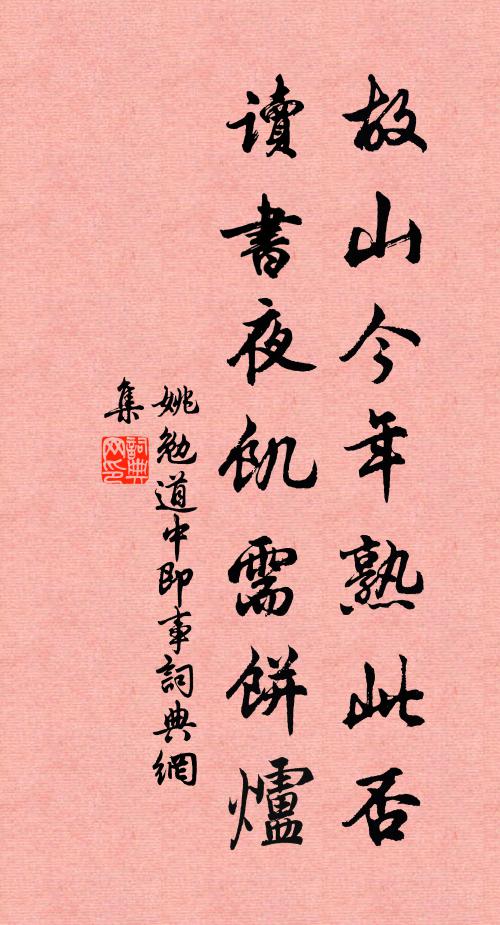 故山今年熟此否
讀書夜飢需餅爐
姚勉道中即事詞典網
集
詞典
网印